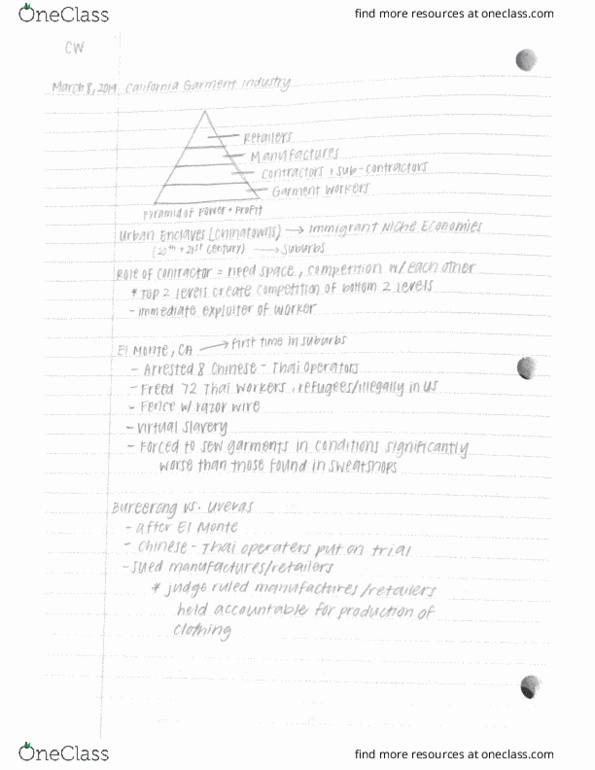 OneClass
find more resources at oneclass.com
CW
March 8, 2019 California Garment Industry
Retailers
Manufactures
Contractors + sub-contractors
Garment workers
Pyramid of Power + Profit
Urban Enclaves (Chinatowns) → Immigrant Niche Economies
(20th + 21st century) → Suburbs
Role of contractor = need space, competition w/ each other
* Top 2 levels create competition of bottom 2 levels
- immediate exploiter of worker
El Monte, CA → First time in suburbs
- Arrested 8 Chinese - Thai operators
- Freed 72 Thai workers, refugees/illegally in US
- Fence w/ razor wire
- virtual slavery
- Forced to sew garments in conditions significantly
worse than those found in sweatshops
Bureerong vs. Uvevas
- after El Monte
- Chinese - Thai operaters put on trial
- sued manufactures/retailers
* judge ruled manufactures/retailers
held accountable for production of
clothing
OneClass
find more resources at oneclass.com